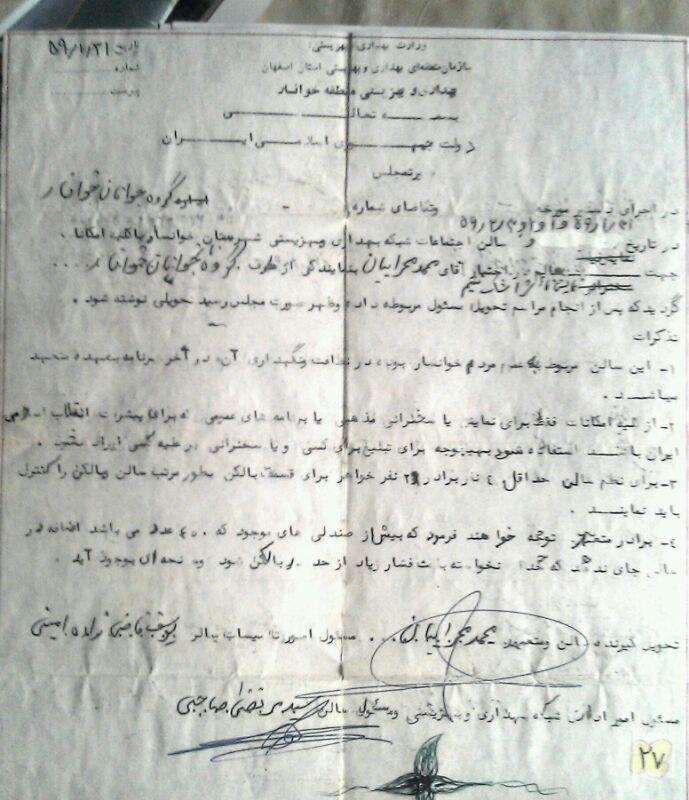 وزارت بهداری و بهزیستی
تاریخ ۵۹/۱/۳۱
سازمان منطقه‌ای بهداری و بهزیستی استان اصفهان
شماره
بهداری و بهزیستی منطقه خوانسار
پیوست
بسمه تعالی
دولت جمهوری اسلامی ایران
صورتمجلس
در اجرای دستور مورخه وتقاضای شماره گروه جوانان خوانسار
در تاریخ ۵۹/۲/ سالن اجتماعات شبکه بهداری وبهزیستی شهرستان خوانسار باکلیه امکانات
جهت در اختیار آقای محمد مهرابیان بنمایندگی از طرف گروه جوانان خوانسار
گردید که پس از انجام مراسم تحویل مسئول مربوطه داده وظهر صورت مجلس رسید تحویلی نوشته شود .
تذکرات
۱- این سالن مربوط به عموم مردم خوانسار بوده در نظافت ونگهداری آن در آخر برنامه بعهده متعهد
میباشد .
۲- از کلیه امکانات فقط برای نمایش یا سخنرانی مذهبی یا برنامه های عمومی که برای پیشرفت انقلاب اسلامی
ایران باشد استفاده شود بهیچوجه برای تبلیغ برای کسی و یا سخنرانی بر علیه کسی ایراد نشود .
۳- برای نظم سالن حداقل ۴ نفر برادر و ۲ نفر خواهر برای قسمت بالکن بطور مرتب سالن وبالکن را کنترل
باید نمایند .
۴- برادر متعهد توجه خواهند فرمود که بیش از صندلی های موجود که ۴۰۰ عدد می باشد اضافه در
سالن جای ندهد که خدای نخواسته باعث فشار زیاد از حد بر بالکن شود و سانحه ای بوجود آید .
تحویل گیرنده سالن ومتعهد محمد مهرابیان مسئول امور تاسیسات سالن
مسئول امور اداری شبکه بهداری و بهزیستی ومسئول سالن سید مرتضی صاحبی
۲۷